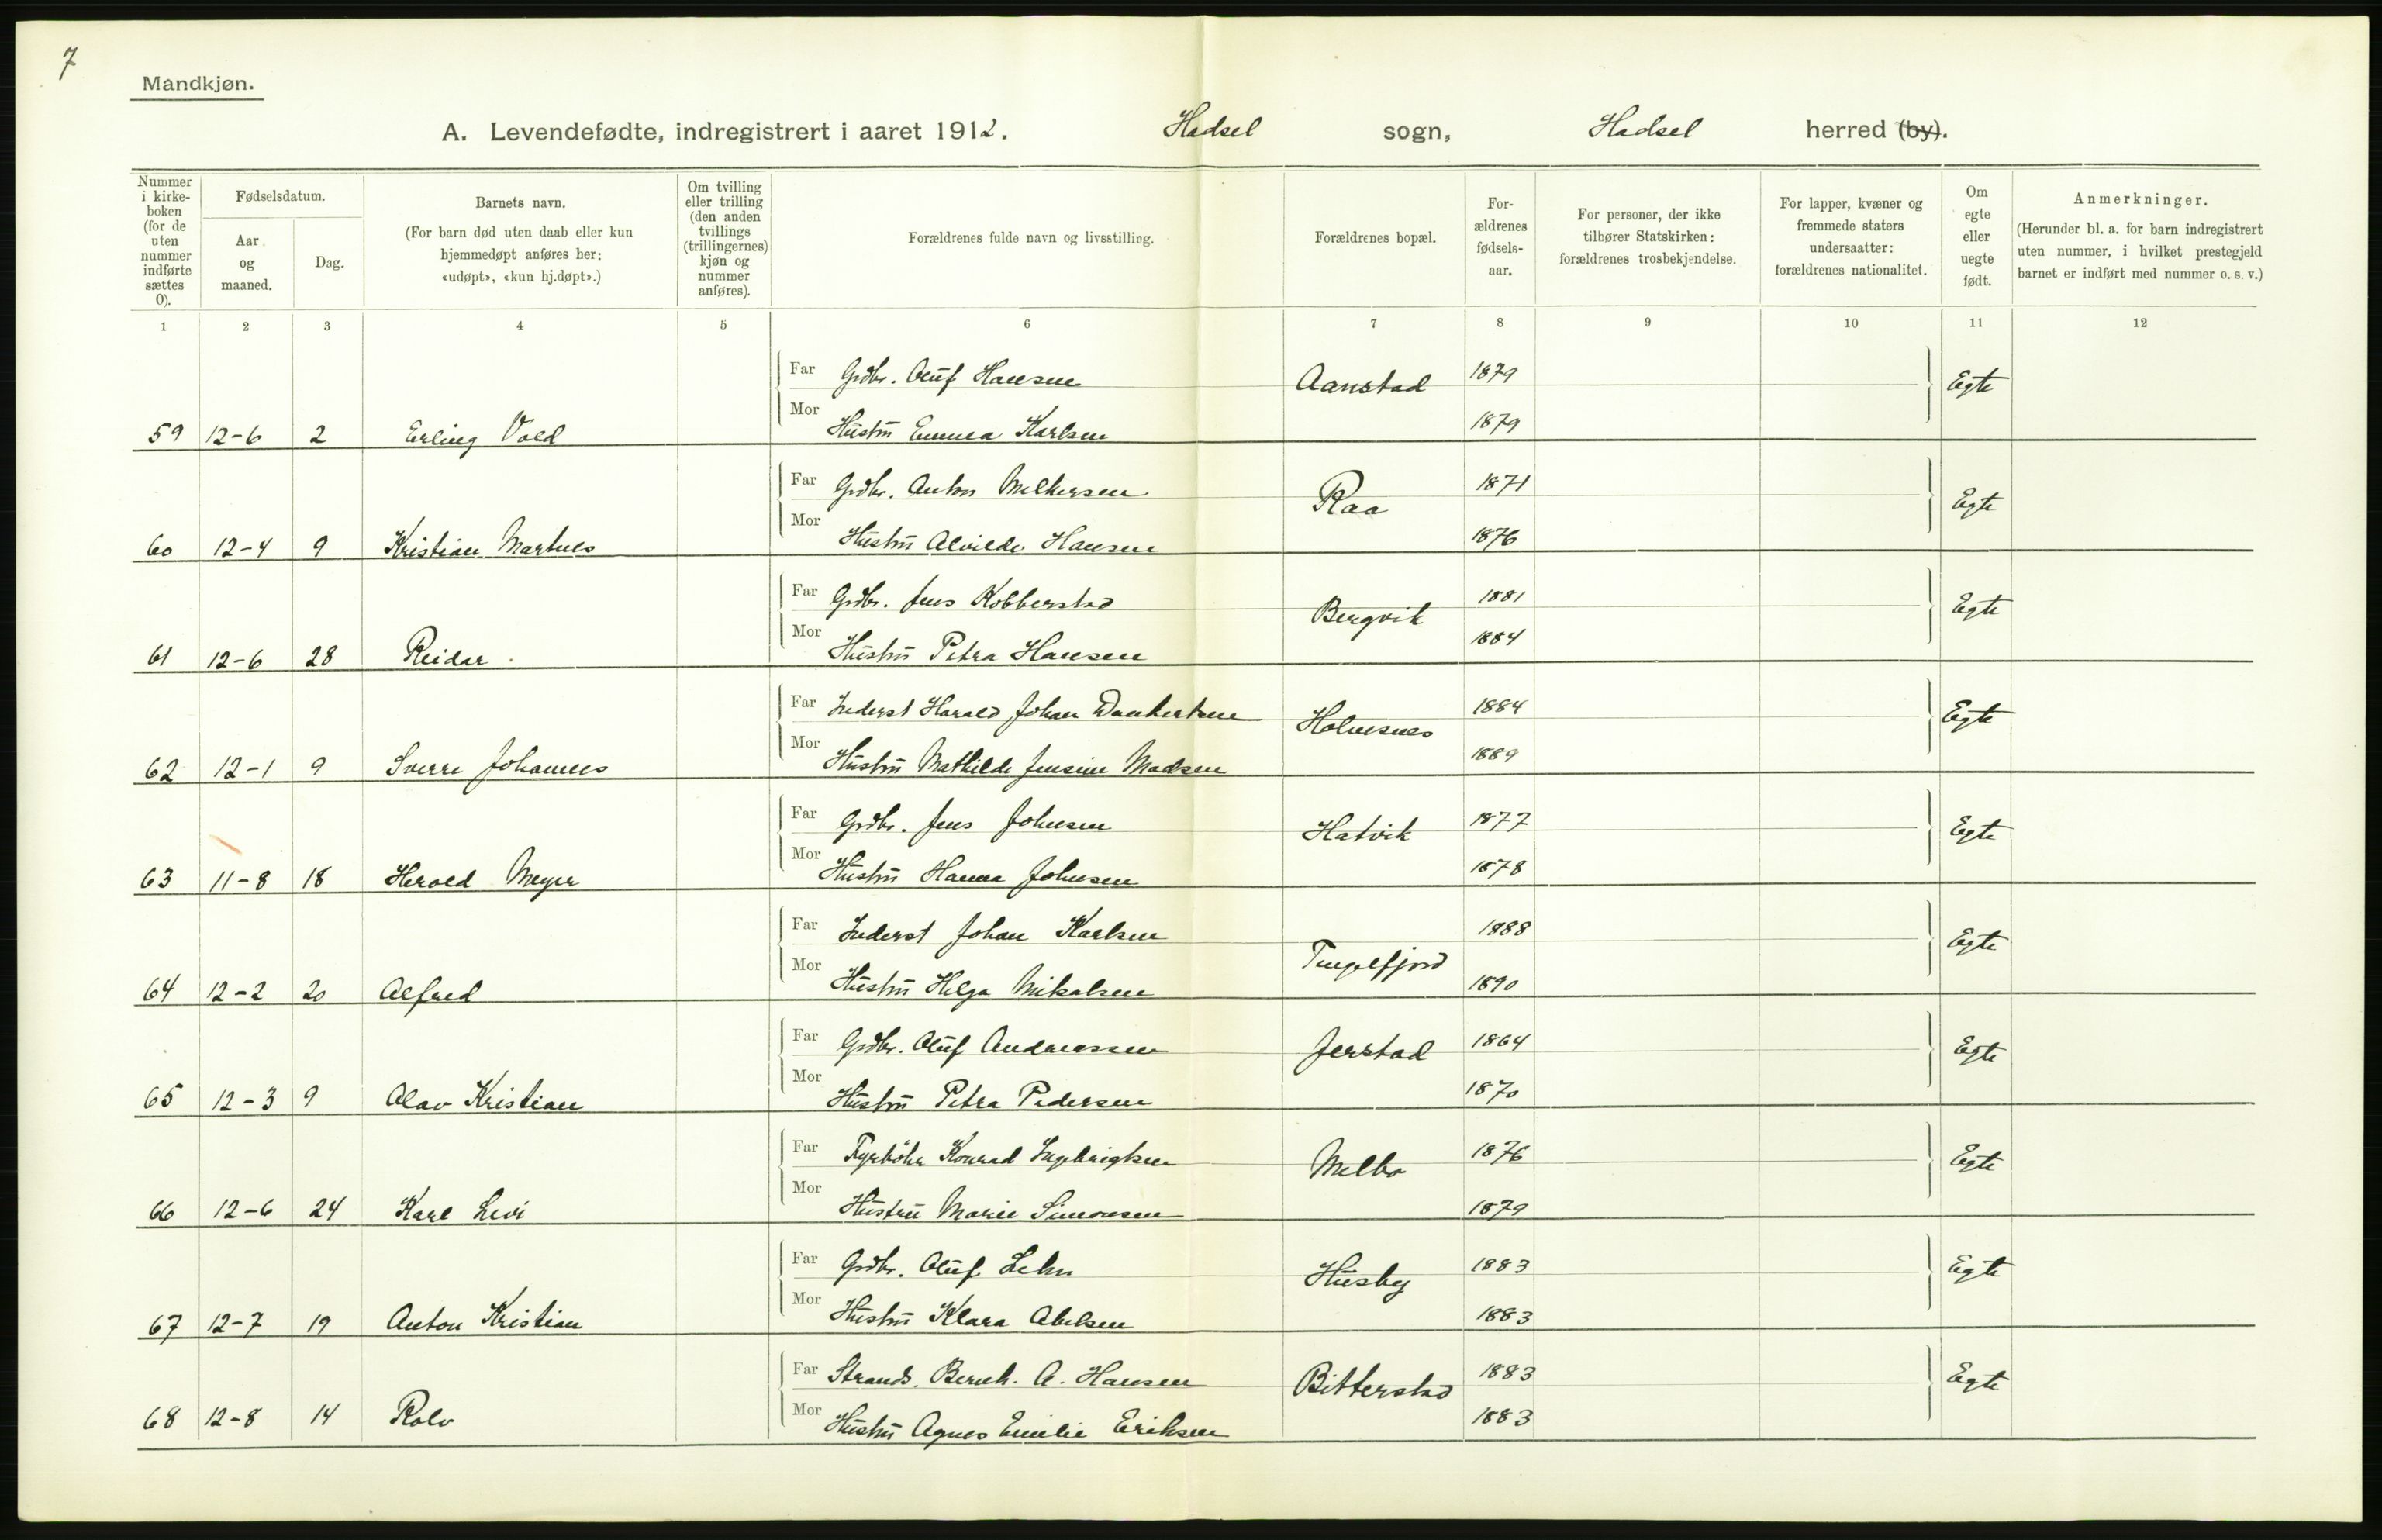 7
Mandkjøn.
A. Levendefødte, indregistrert i aaret 1912. Hadsel sogn, Hadsel herred (by).
Nummer i kirkeboken (for de uten nummer indførte sættes 0).
Fødselsdatum.
Aar og maaned.
Dag.
Barnets navn.
(For barn død uten daab eller kun hjemmedøpt anføres her: «udøpt», «kun hj.døpt».)
Om tvilling eller trilling (den anden tvillings (trillingernes) kjøn og nummer anføres).
Forældrenes fulde navn og livsstilling.
Forældrenes bopæl.
Forældrenes fødselsaar.
For personer, der ikke tilhører Statskirken: forældrenes trosbekjendelse.
For lapper, kvæner og fremmede staters undersaatter: forældrenes nationalitet.
Om egte eller uegte født.
Anmerkninger.
(Herunder bl. a. for barn indregistrert uten nummer, i hvilket prestegjeld barnet er indført med nummer o. s. v.)
1 2 3 4 5 6 7 8 9 10 11 12
Far Grdbr. Oluf Hansen Aanstad 1879 Egte
59 12-6 2 Erling Vold Mor Hustru Emma Karlsen 1879
Far Grdbr. Anton Melkersen Raa 1871 Egte
60 12-4 9 Kristian Martnes Mor Hustru Alvilde Hansen 1876
Far Grdbr. Jens Kobberstad Bergvik 1881 Egte
61 12-6 28 Reidar Mor Hustru Petra Hansen 1884
Far Inderst Harald Johan Dankertsen Holmsnes 1884 Egte
62 12-1 9 Sverre Johannes Mor Hustru Mathilde Jensine Madsen 1889
Far Grdbr. Jens Johnsen Hatvik 1877 Egte
63 11-8 18 Herold Meyer Mor Hustru Hanna Johnsen 1878
Far Inderst Johan Karlsen Tengelfjord 1888 Egte
64 12-2 20 Alfred Mor Hustru Helga Mikalsen 1890
Far Grdbr. Oluf Andreassen Jerstad 1864 Egte
65 12-3 9 Olav Kristian Mor Hustru Petra Pedersen 1870
Far Fyrbøter Konrad Ingebrigtsen Melbo 1876 Egte
66 12-6 24 Karl Levi Mor Hustru Marie Simonsen 1879
Far Grdbr. Oluf Lehn Husby 1883 Egte
67 12-7 19 Anton Kristian Mor Hustru Klara Abelsen 1883
Far Strands. Bernh. A. Hansen Bitterstad 1883 Egte
68 12-8 14 Rolv Mor Hustru Agnes Emilie Eriksen 1883